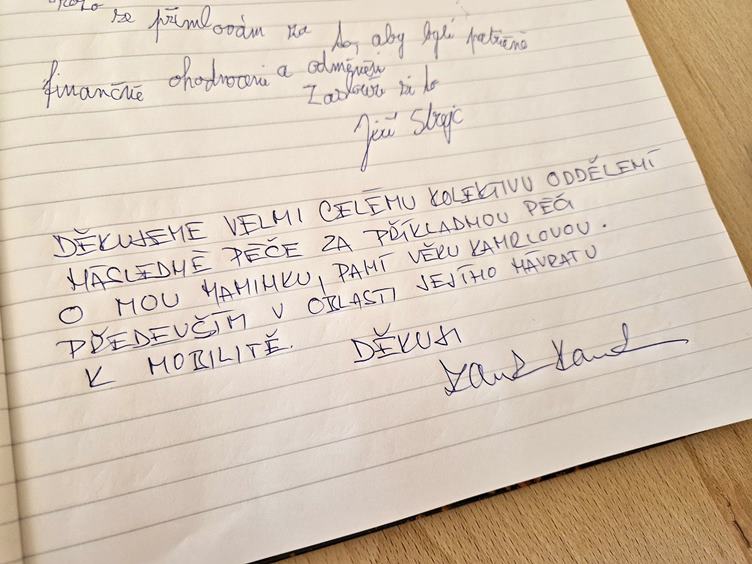 se přimlouvám za to, aby byli patřičně
finančně ohodnoceni a odměněni
Zaslouží si to
Jiří
DĚKUJEME VELMI CELÉMU KOLEKTIVU ODDĚLENÍ
NÁSLEDNÉ PÉČE ZA PŘÍKLADNOU PÉČI
O MOU MAMINKU, PANÍ VĚRU KAMRLOVOU.
PŘEDEVŠÍM V OBLASTI JEJÍHO NÁVRATU
K MOBILITĚ. DĚKUJI